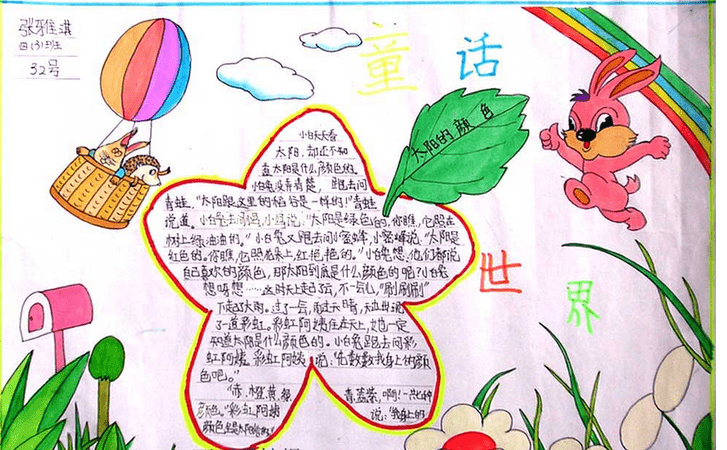 张雅淇
四(3)班
32号
童话
世界
太阳的颜色
小白兔天天看
太阳，却还不知
道太阳是什么颜色的。
小白兔没弄清楚，跑去问
青蛙，“太阳跟这里的稻谷是一样的！”青蛙
说道。小白兔去问小马，小马说，“太阳是绿色的，你瞧，它照在
树上绿油油的。”小白兔又跑去问小蜜蜂，小蜜蜂说，“太阳是
红色的。你瞧，它照花朵上，红艳艳的。”小白兔想，他们都说
自己喜欢的颜色，那太阳到底是什么颜色的呢？小白兔
想啊想……这时天上起了云，不一会儿，“刷刷刷”
下起了大雨。过了一会，雨过天晴，天边出现
了一道彩虹。彩虹阿姨住在天上，她一定
知道太阳是什么颜色的。小白兔跑去问彩
虹阿姨。彩虹阿姨说，“先数数我身上的颜
色吧。”
“赤、橙、黄、绿
青、蓝、紫，啊！一共七种
颜色。”彩虹阿姨
说：“我身上的
颜色全是太阳给的。”